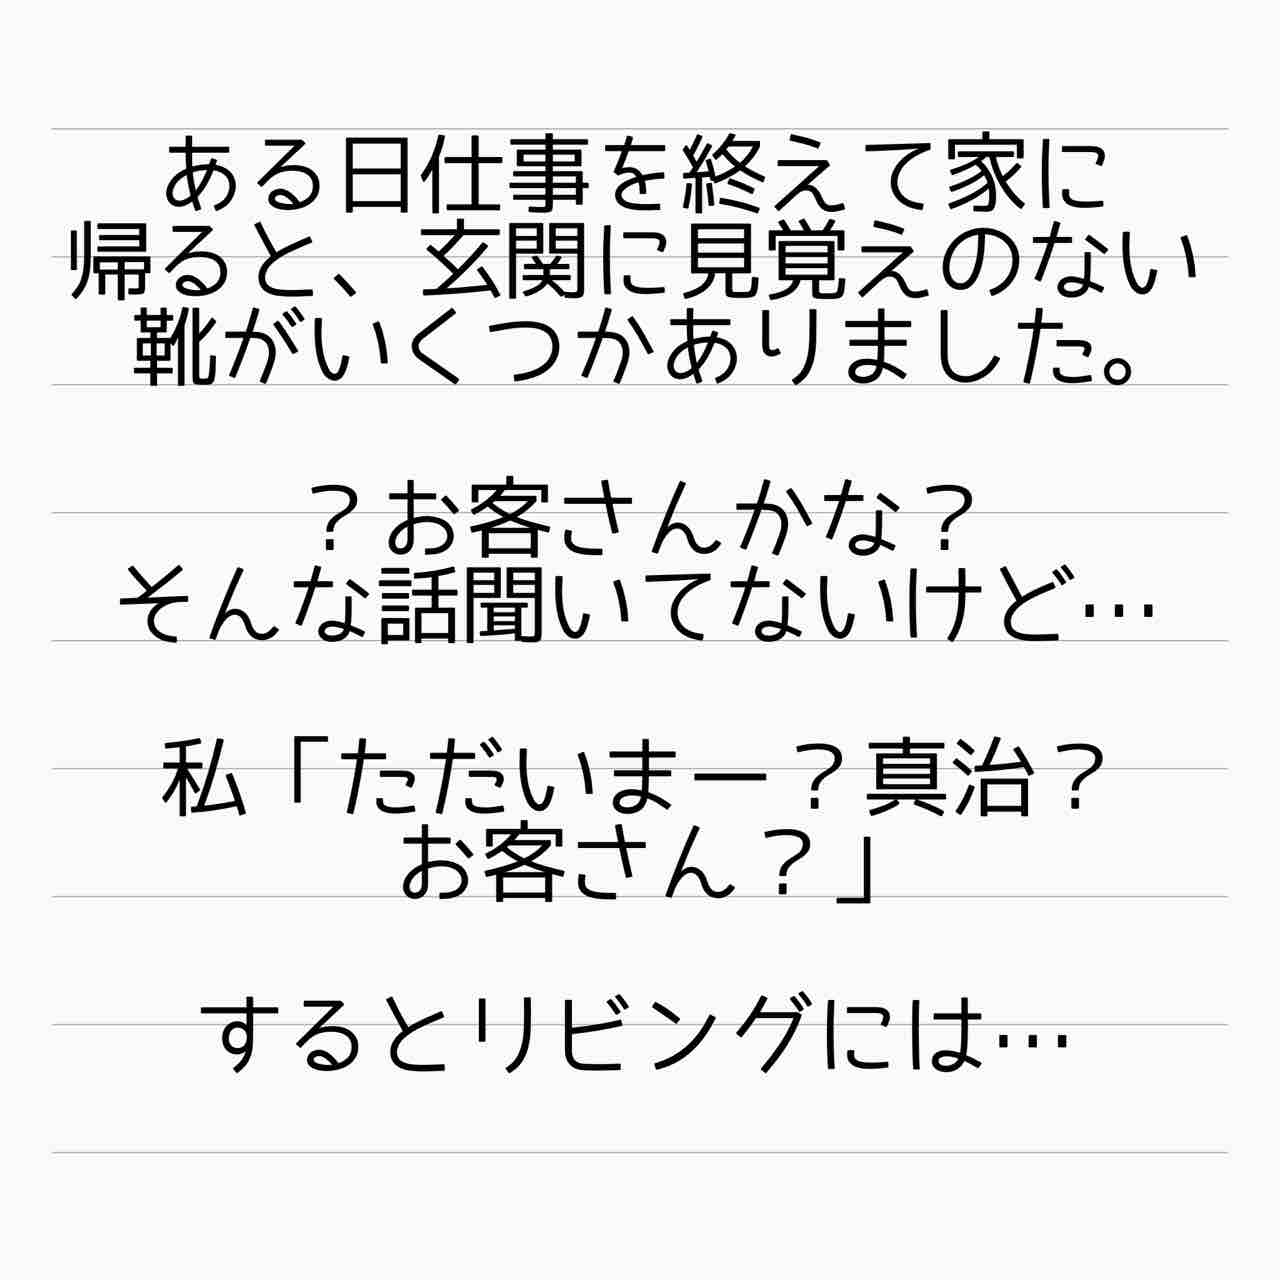 ある日仕事を終えて家に
帰ると、玄関に見覚えのない
靴がいくつかありました。
？お客さんかな？
そんな話聞いてないけど…
私「ただいまー？真治？
お客さん？」
するとリビングには…